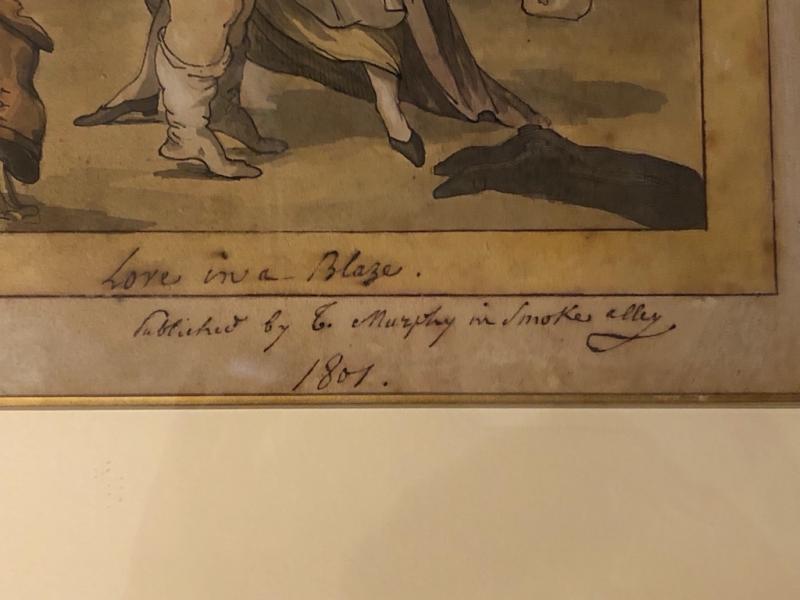 Love in a Blaze.
Published by T. Murphy in Smoke alley
1801.